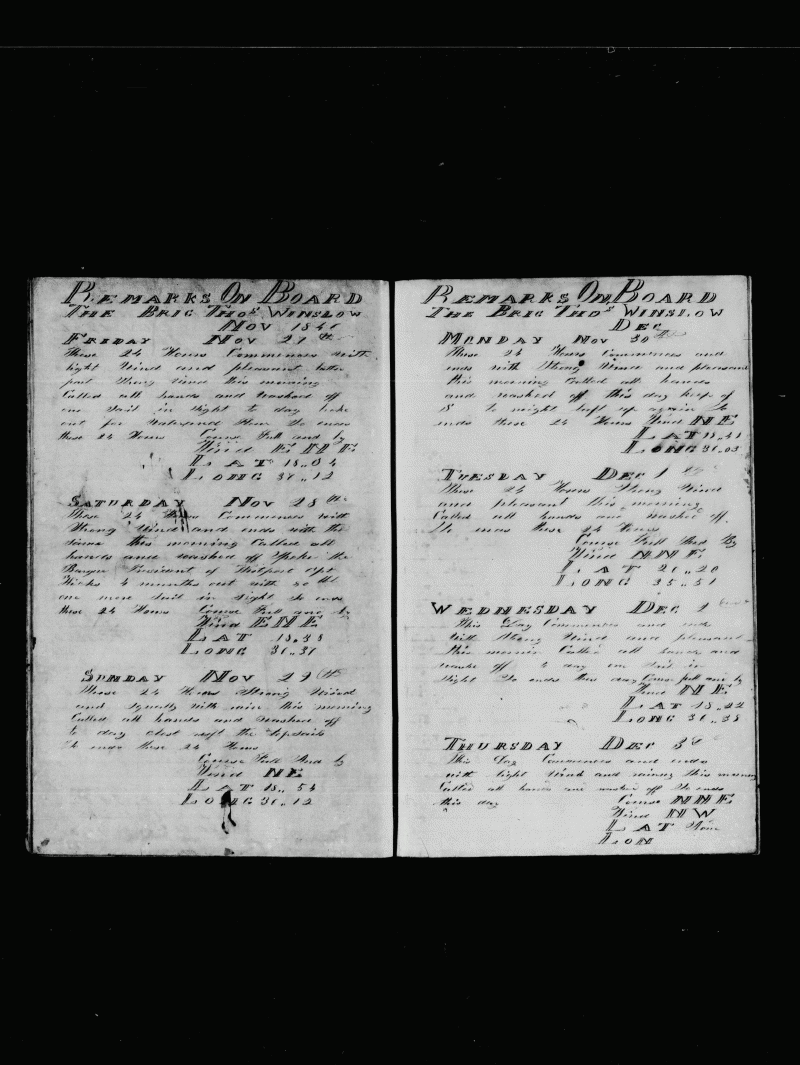 REMARKS ON BOARD
THE BRIG THOS WINSLOW
NOV 184
FRIDAY NOV 27th
These 24 Hours Commences with
light Wind and pleasant latter
part Strong Wind this morning
Called all hands and washed off
one Sail in Sight to day look
out for So ends
these 24 Hours Course Full and by
Wind ENE
LAT 18..04
LONG 37..12
SATURDAY NOV 28th
These 24 Hours Commences with
Strong Wind and ends with the
Same this morning Called all
hands and washed off Spoke the
Barque President of Westport Capt
Hicks 4 months out with 30 bbl
one more Sail in Sight So ends
these 24 Hours Course Full and by
Wind ENE
LAT 18..38
LONG 36..37
SUNDAY NOV 29th
These 24 Hours Strong Wind
and Squally with rain this morning
Called all hands and washed off
to day close reeft the topsails
So ends these 24 Hours
Course Full And by
Wind NE
LAT 18..54
LONG 36..12
REMARKS ON BOARD
THE BRIG THOS WINSLOW
DEC
MONDAY NOV 30th
These 24 Hours Commences and
ends with Strong Wind and pleasant
this morning Called all hands
and washed off this day keep of
S to night luft up again So
ends these 24 Hours Wind NE
LAT 18..41
LONG 36..03
TUESDAY DEC 1
These 24 Hours Strong Wind
and pleasant this morning
Called all hands and washed off
So ends these 24 Hours
Course Full And By
Wind NNE
LAT 20..20
LONG 35..51
WEDNESDAY DEC 2
This Day Commences and ends
with Strong Wind and pleasant
this mornin Called all hands and
washe off to day one Sail in
Sight So ends this day Course full and by
Wind NE
LAT 18..22
LONG 36..38
THURSDAY DEC 3d
This Day Commences and ends
with light Wind and rainy this morning
Called all hands and washed off So ends
this day Course NNE
Wind NW
LAT None
LON